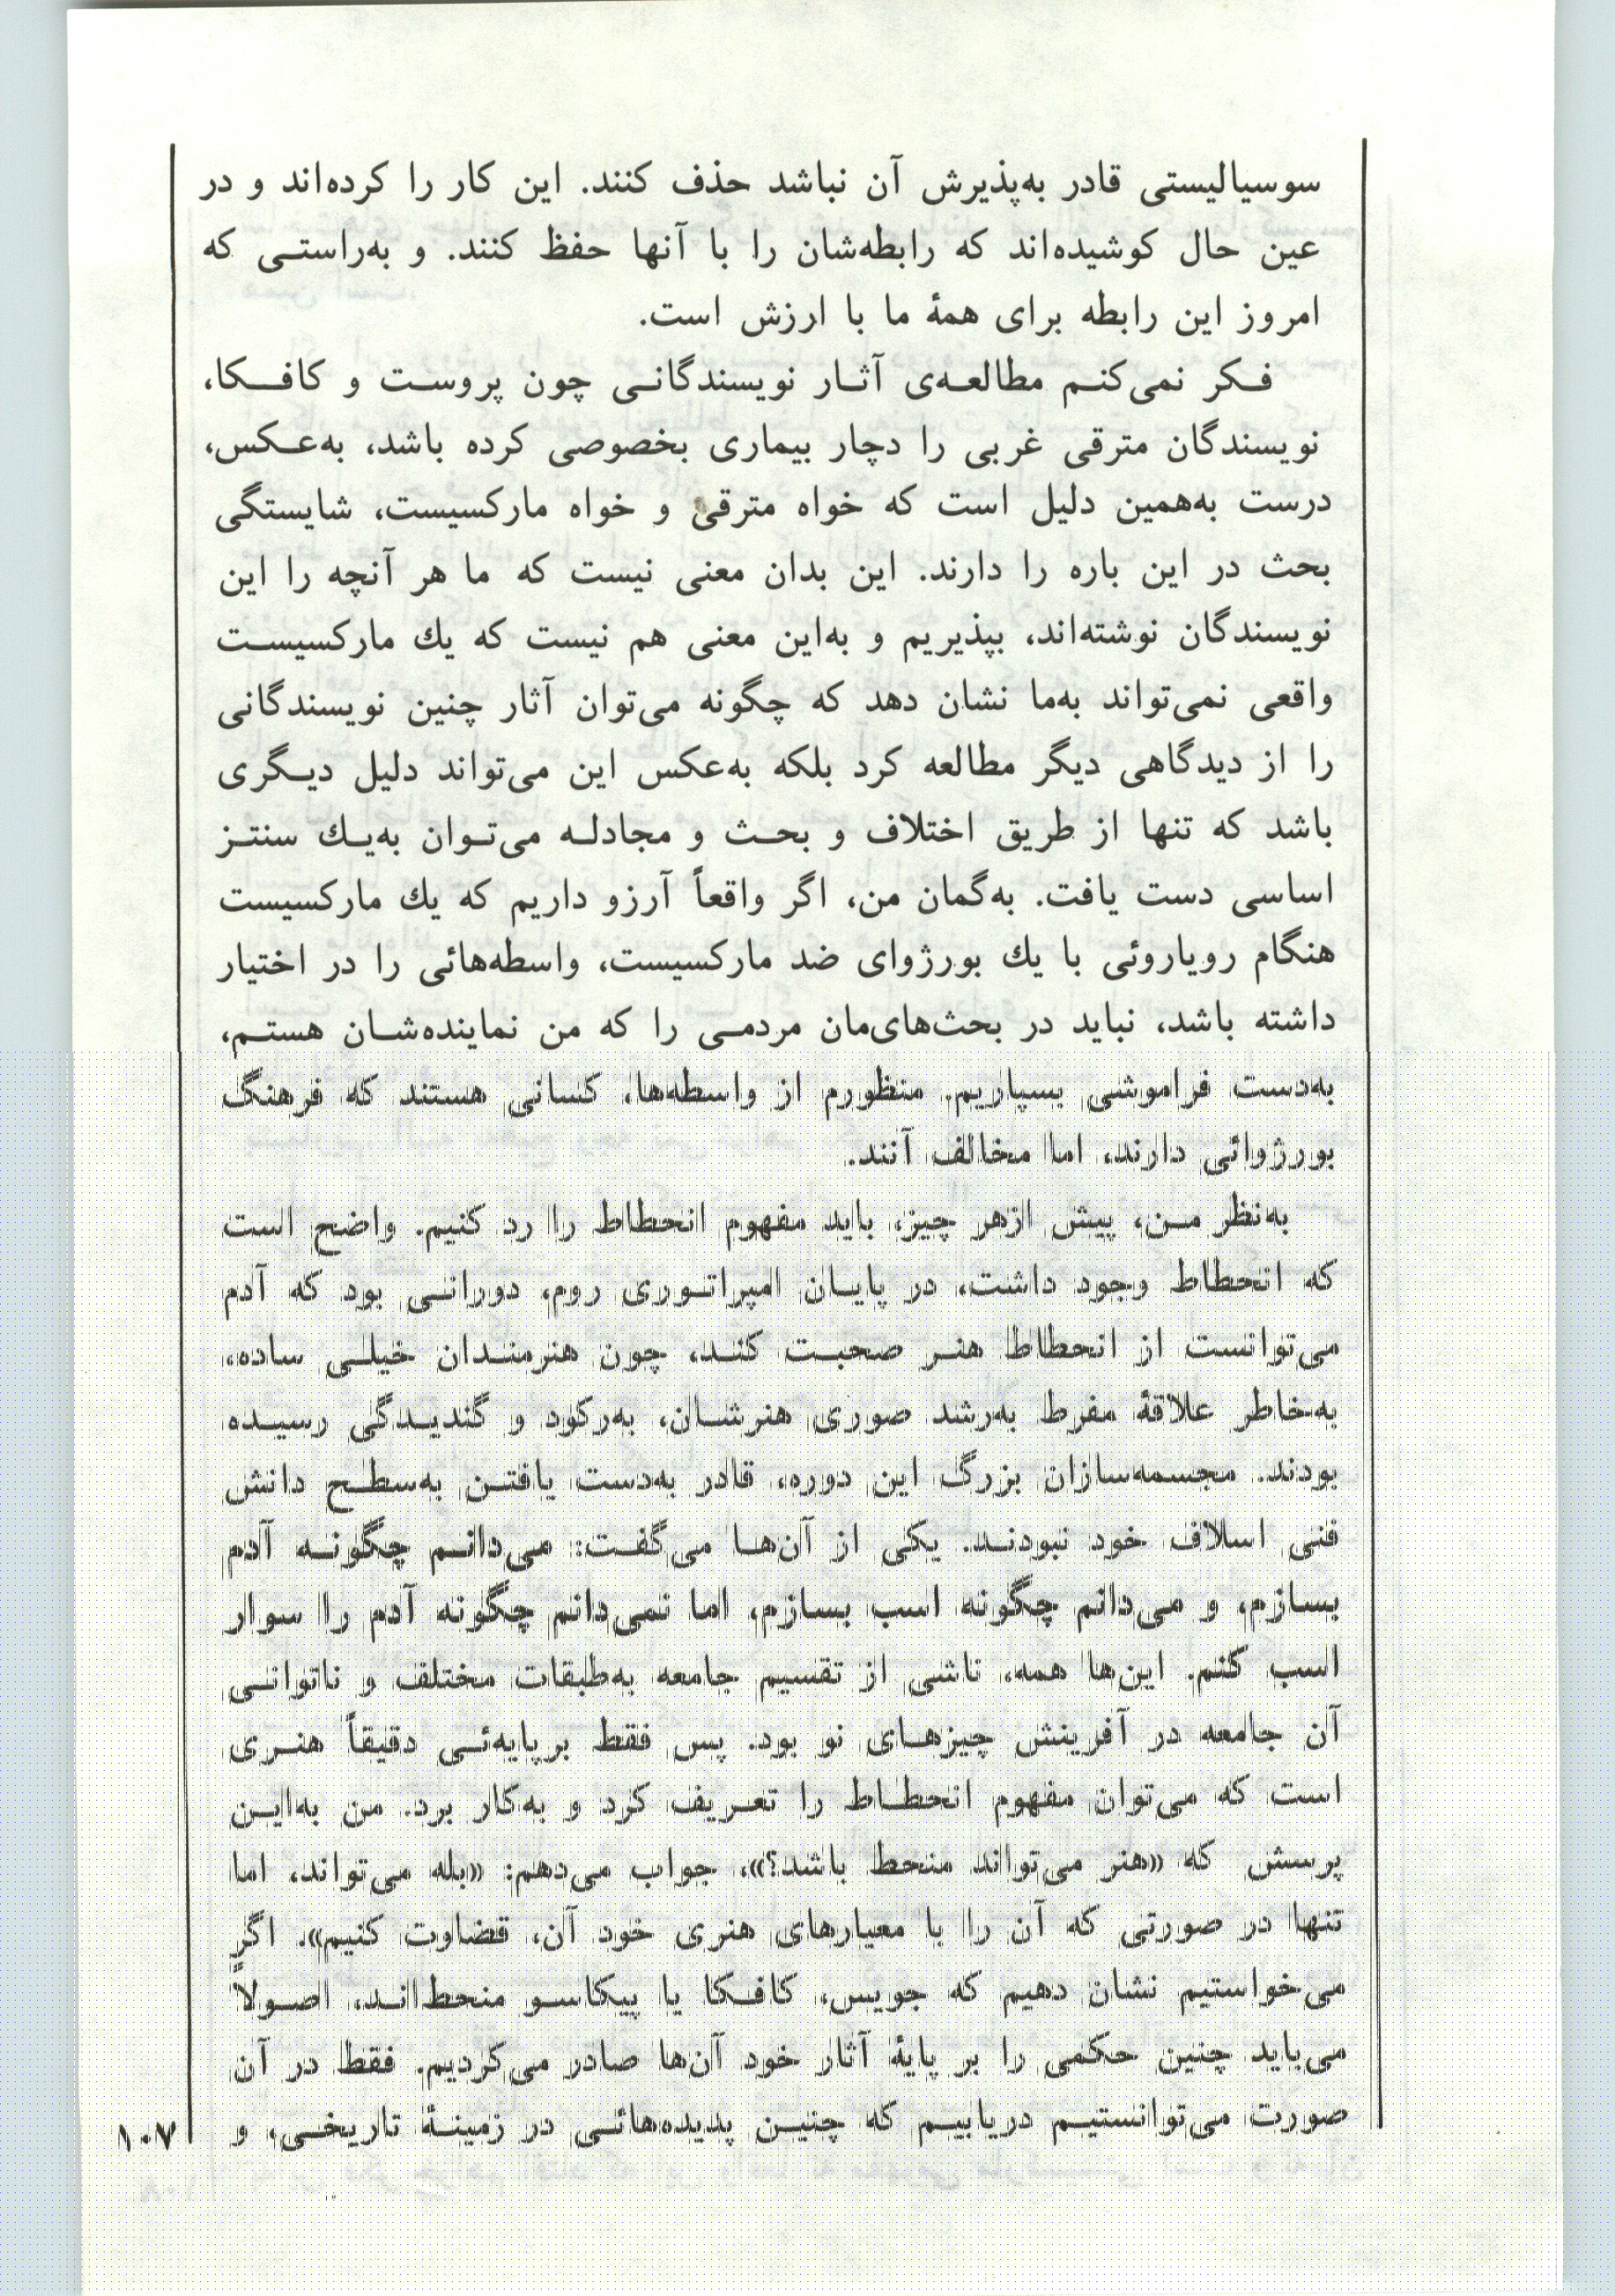 سوسیالیستی قادر به‌پذیرش آن نباشد حذف کنند. این کار را کرده‌اند و در
عین حال کوشیده‌اند که رابطه‌شان را با آنها حفظ کنند. و به‌راستـی که
امروز این رابطه برای همهٔ ما با ارزش است.
فـکر نمی‌کنـم مطالعـه‌ی آثـار نویسندگانـی چون پروسـت و کافـکا،
نویسندگان مترقی غربی را دچار بیماری بخصوصی کرده باشد، به‌عـکس،
درست به‌همین دلیل است که خواه مترقی و خواه مارکسیست، شایستگی
بحث در این باره را دارند. این بدان معنی نیست که ما هر آنچه را این
نویسندگان نوشته‌اند، بپذیریم و به‌این معنی هم نیست که یك مارکسیسـت
واقعی نمی‌تواند به‌ما نشان دهد که چگونه می‌توان آثار چنین نویسندگانی
را از دیدگاهی دیگر مطالعه کرد بلکه به‌عکس این می‌تواند دلیل دیـگری
باشد که تنها از طریق اختلاف و بحـث و مجادلـه می‌تـوان به‌یـك سنتـز
اساسی دست یافت. به‌گمان من، اگر واقعاً آرزو داریم که یك مارکسیست
هنگام رویاروئی با یك بورژوای ضد مارکسیست، واسطه‌هائی را در اختیار
داشته باشد، نباید در بحث‌های‌مان مردمـی را که من نماینده‌شـان هستـم،
به‌دست فراموشی بسپاریم. منظورم از واسطه‌ها، کسانی هستند که فرهنگ
بورژوائی دارند، اما مخالف آنند.
به‌نظر مـن، پیش ازهر چیز، باید مفهوم انحطاط را رد کنیم. واضح است
که انحطاط وجود داشت، در پایـان امپراتـوری روم، دورانـی بود که آدم
می‌توانست از انحطاط هنـر صحبـت کنـد، چون هنرمنـدان خیلـی ساده،
به‌خاطر علاقهٔ مفرط به‌رشد صوری هنرشـان، به‌رکود و گندیـدگی رسیـده
بودند. مجسمه‌سازان بزرگ این دوره، قادر به‌دست یافتـن به‌سطـح دانش
فنی اسلاف خود نبودنـد. یکی از آن‌هـا می‌گفـت: می‌دانـم چگونـه آدم
بسازم، و می‌دانم چگونه اسب بسازم، اما نمی‌دانم چگونه آدم را سوار
اسب کنم. این‌ها همه، ناشی از تقسیم جامعه به‌طبقات مختلف و ناتوانـی
آن جامعه در آفرینش چیزهـای نو بود. پس فقط برپایه‌ئـی دقیقاً هنـری
است که می‌توان مفهوم انحطـاط را تعـریف کرد و به‌کار برد. من به‌ایـن
پرسش که «هنر می‌تواند منحط باشد؟»، جواب می‌دهم: «بله می‌تواند، اما
تنها در صورتی که آن را با معیارهای هنری خود آن، قضاوت کنیم». اگر
می‌خواستیم نشان دهیم که جویس، کافـکا یا پیکاسـو منحط‌انـد، اصـولاً
می‌باید چنین حکمی را بر پایهٔ آثار خود آن‌ها صادر می‌کردیم. فقط در آن
صورت می‌توانستیـم دریابیـم که چنیـن پدیده‌هائـی در زمینـهٔ تاریخـی، و
۱۰۷